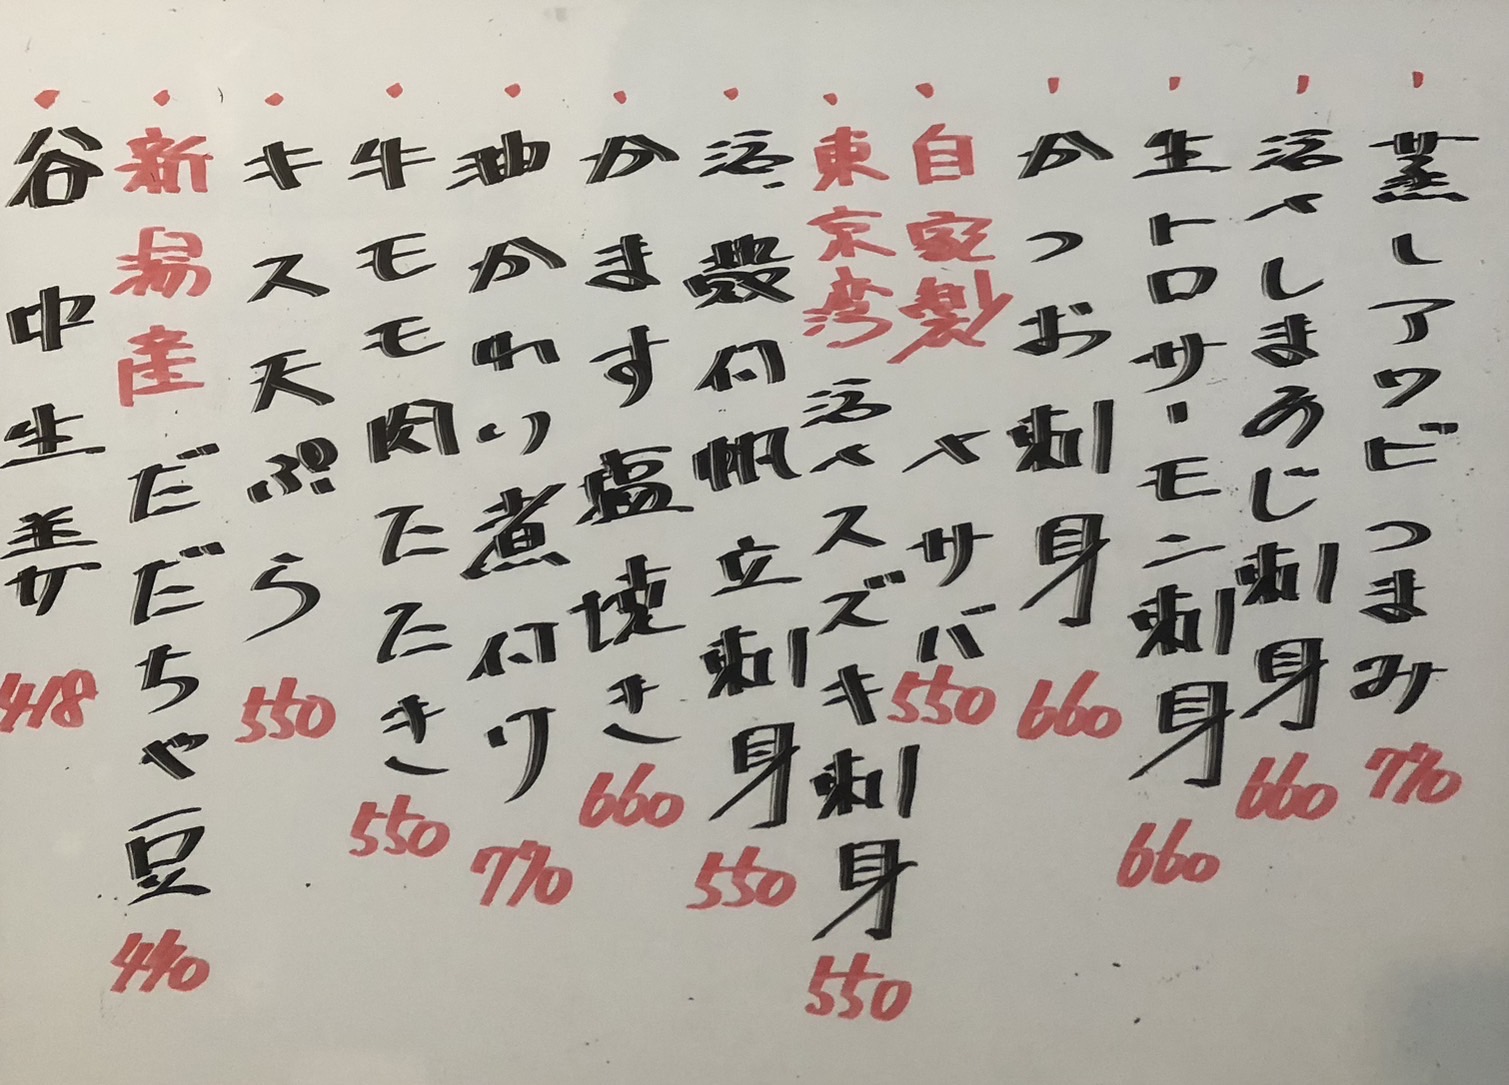 ・蒸しアワビつまみ 770
・活〆しまあじ刺身 660
・生トロサーモン刺身 660
・かつお刺身 660
・自家製〆サバ 550
・東京湾活〆スズキ刺身 550
・活、殻付帆立刺身 550
・かます塩焼き 660
・油かれい煮付け 770
・牛モモ肉たたき 550
・キス天ぷら 550
・新潟産だだちゃ豆 440
・谷中生姜 418